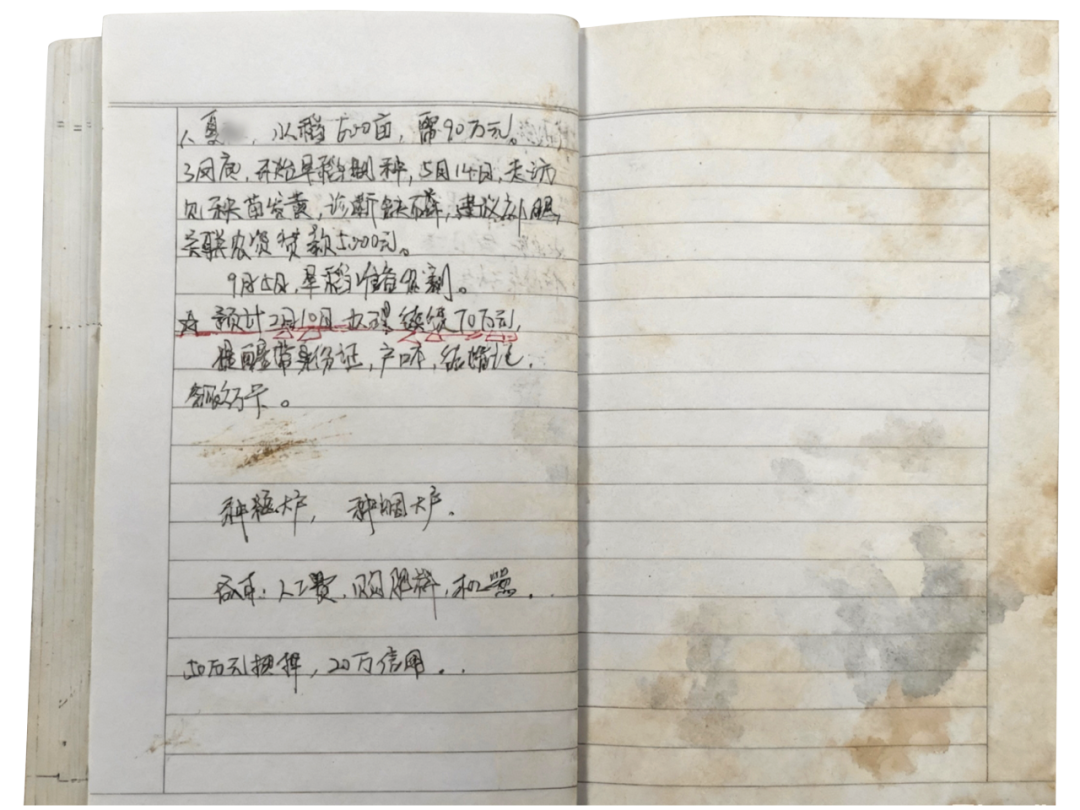 夏，水稻500亩，需90万元。
3月底，开始早稻制种，5月14日，走访
见秧苗发黄，诊断缺磷，建议补肥，
关联农资贷款5000元。
9月15日，早稻准备收割。
☆ 预计2月10日办理续贷70万元，
提醒带身份证，户口本，结婚证，
银行卡。
种粮大户，种烟大户。
成本：人工费，购肥料，机器．．
50万元担保，20万信用．．